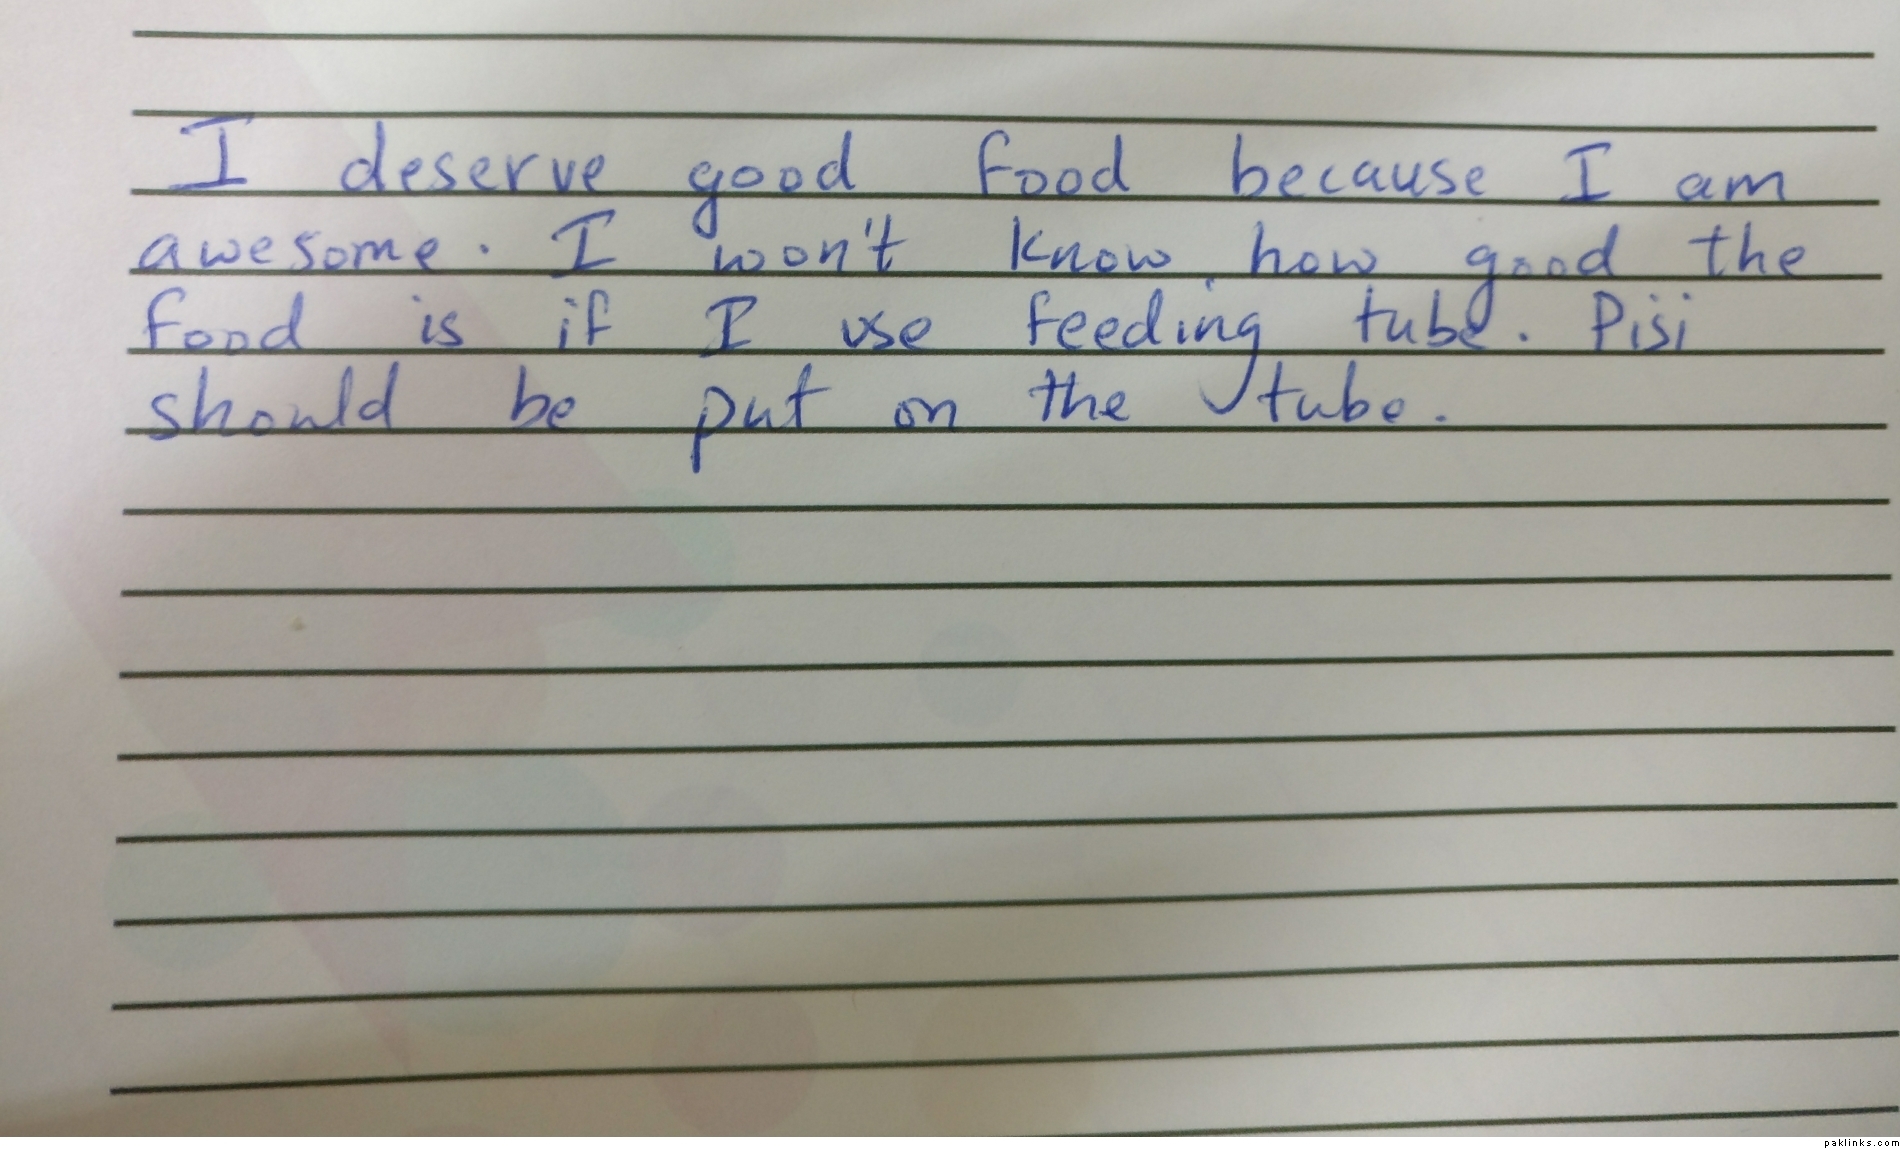 I deserve good food because I am
awesome. I won't know how good the
food is if I use feeding tube. Pisi
should be put on the tube.
paklinks.com